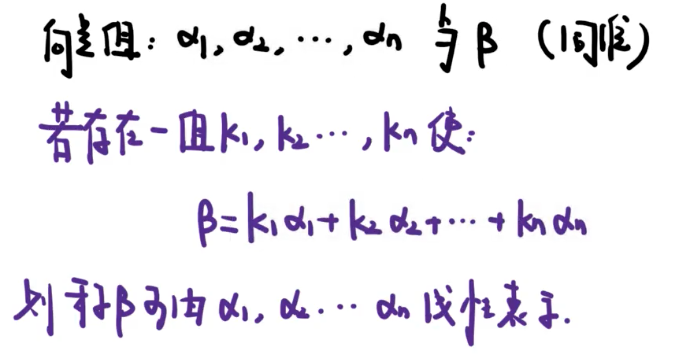 向量组：α₁, α₂, ⋯, αₙ 与 β （同维）
若存在一组 k₁, k₂ ⋯, kₙ 使：
β = k₁α₁ + k₂α₂ + ⋯ + kₙαₙ
则称 β 可由 α₁, α₂ ⋯ αₙ 线性表示.